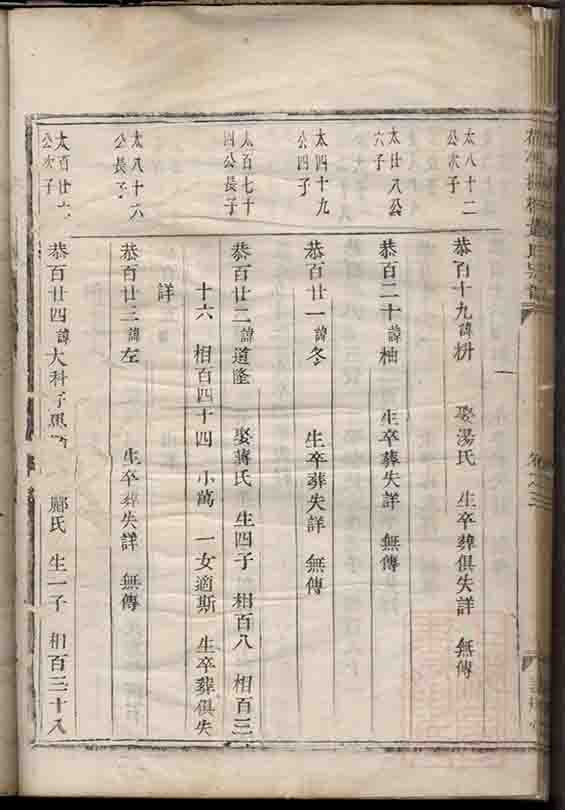 太八十二
公次子
恭百十九諱枡 娶湯氏 生卒葬俱失詳 無傳
太廿八公
六子
恭百二十諱柚 生卒葬失詳 無傳
太四十九
公四子
恭百廿一諱冬 生卒葬失詳 無傳
太百七十
四公長子
恭百廿二諱道隆 娶蔣氏 生四子 相百八 相百三
十六 相百四十四 小萬 一女適斯 生卒葬俱失
詳
太八十六
公長子
恭百廿三諱左 生卒葬失詳 無傳
太百廿六
公次子
恭百廿四諱大科字思 酈氏 生一子 相百三十八